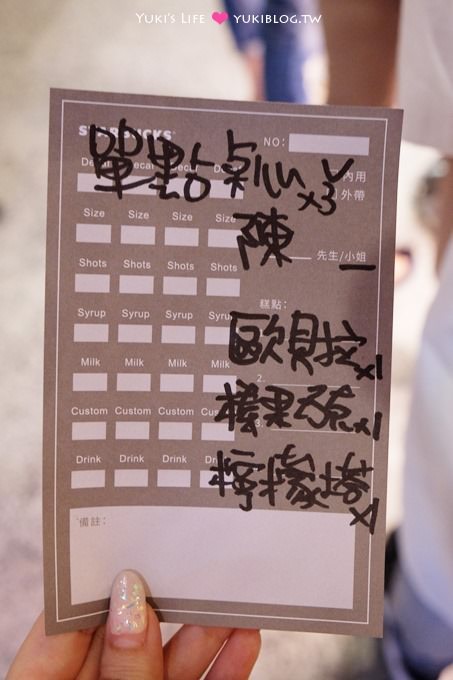 YUKI'S LIFE ❤ YUKIBLOG.TW
STARBUCKS
NO:
單點桌心x3
Decaf Decaf Decaf Decaf
內用
外帶
Size Size Size Size
陳 先生/小姐
Shots Shots Shots Shots
糕點:
Syrup Syrup Syrup Syrup
歐貝拉x1
Milk Milk Milk Milk
2.
榛果
x1
Custom Custom Custom Custom
3.
Drink Drink Drink Drink
檸檬塔x1
備註: